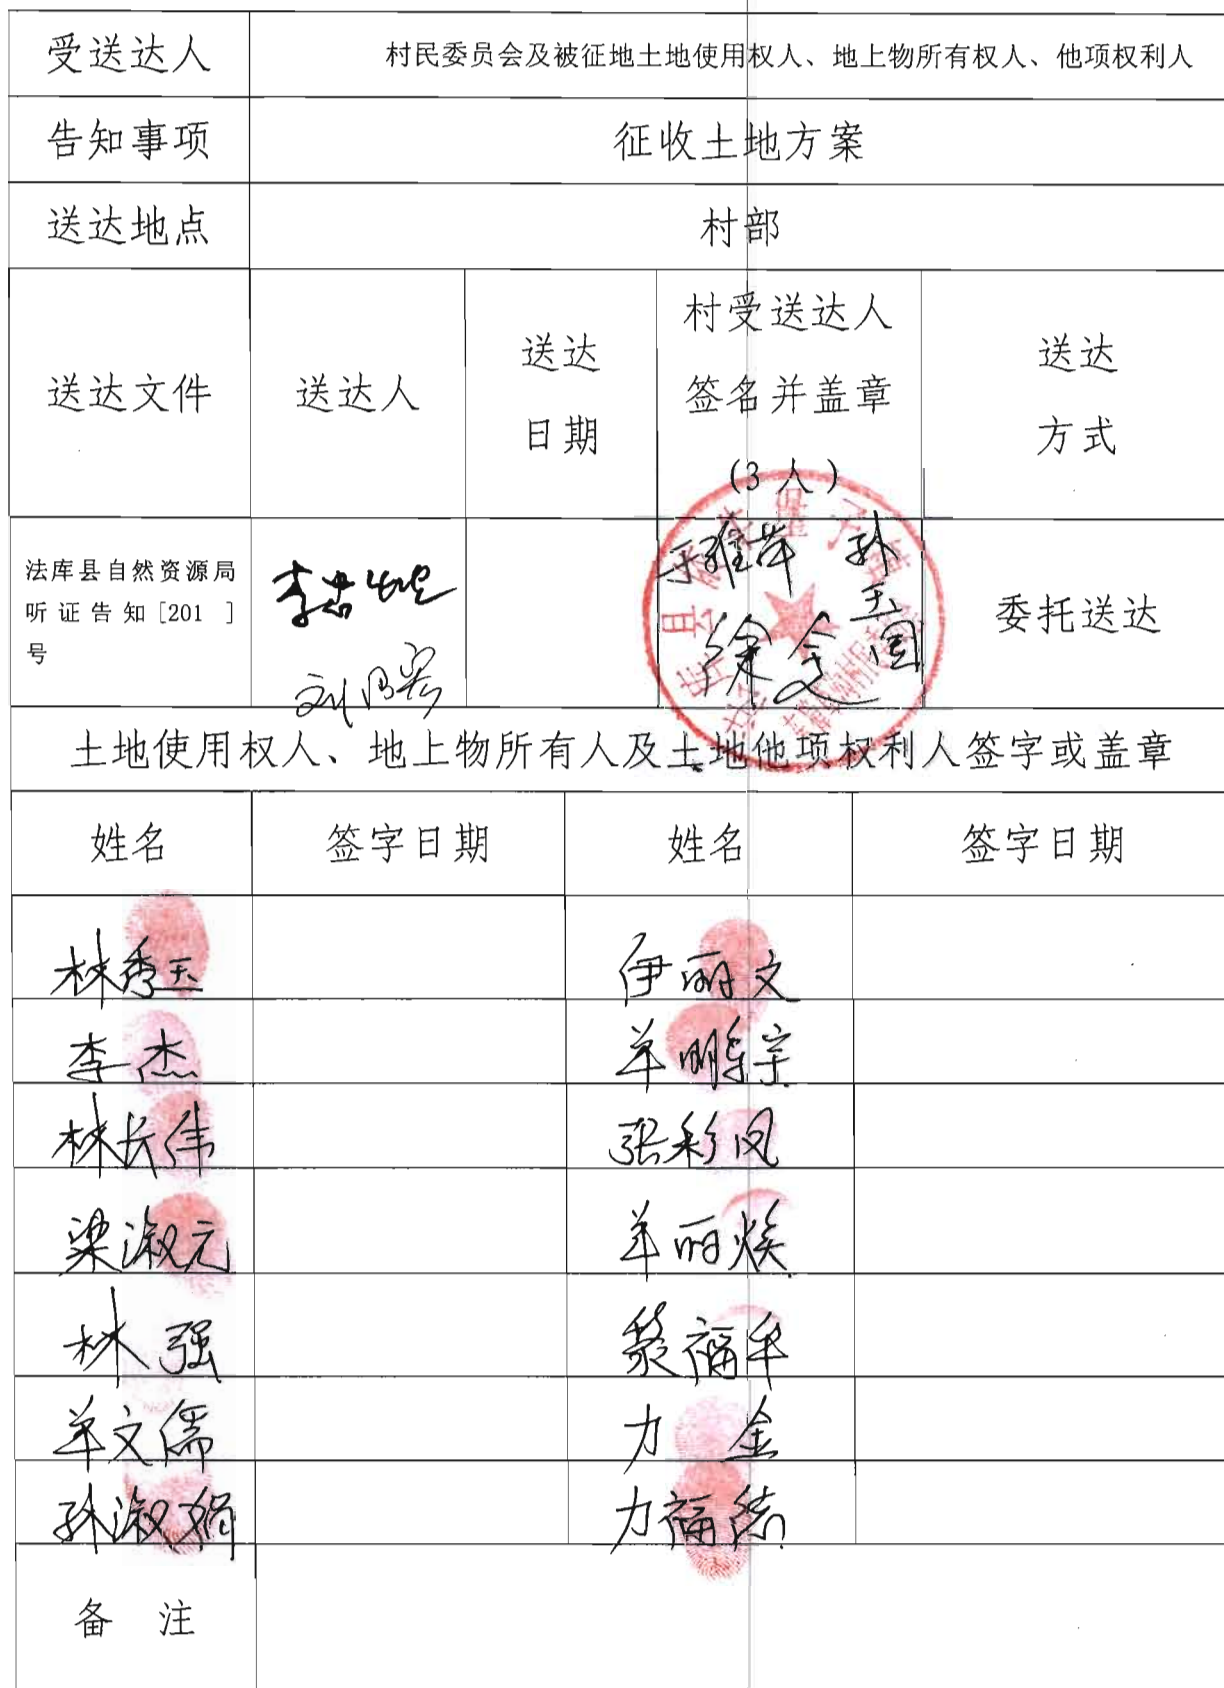 受送达人 村民委员会及被征地土地使用权人、地上物所有权人、他项权利人
告知事项 征收土地方案
送达地点 村部
送达文件 送达人 送达日期 村受送达人签名并盖章(3人) 送达方式
法库县自然资源局
听证告知[201 ]
号
委托送达
土地使用权人、地上物所有人及土地他项权利人签字或盖章
姓名 签字日期 姓名 签字日期
林秀玉 伊丽文
李杰
林长伟 张彩凤
梁淑元
林强
单文儒 力金
孙淑娟
备 注